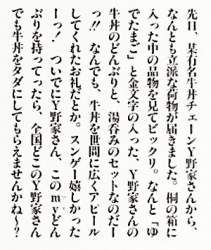 先日、某有名牛丼チェーンY野家さんから、
なんとも立派な荷物が届きました。桐の箱に
入った中の品物を見てビックリ。なんと「ゆ
でたまご」と金文字の入った、Y野家さんの
牛丼のどんぶりと、湯呑みのセットなのだー
っ!! なんでも、牛丼を世間に広くアピール
してくれたお礼だとか。スンゲー嬉しかった
ーっ! ついでにY野家さん、このmyどん
ぶりを持ってったら、全国どこのY野家さん
でも牛丼をタダにしてもらえませんかねー?